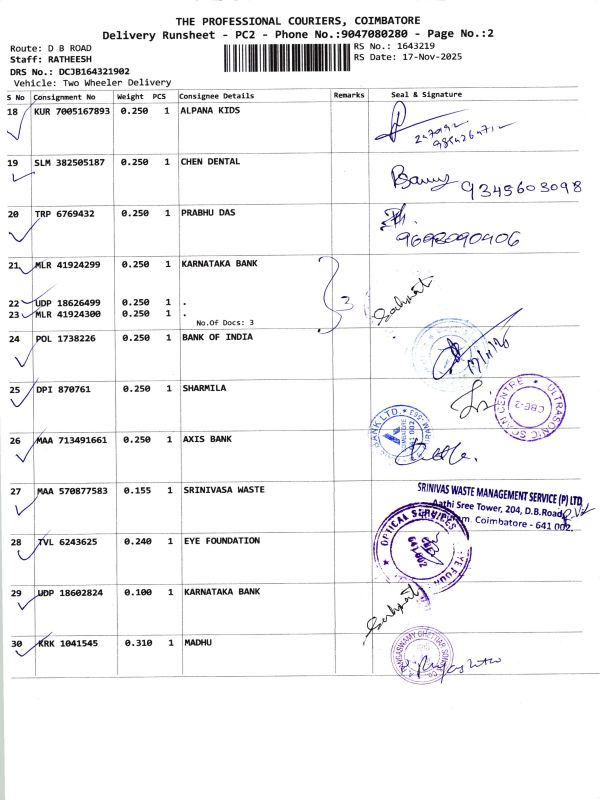 THE PROFESSIONAL COURIERS, COIMBATORE
Delivery Runsheet - PC2 - Phone No.:9047080280 - Page No.:2
Route: D B ROAD
RS No.: 1643219
Staff: RATHEESH
RS Date: 17-Nov-2025
DRS No.: DCJB164321902
Vehicle: Two Wheeler Delivery
S No Consignment No Weight PCS Consignee Details Remarks Seal & Signature
18 KUR 7005167893 0.250 1 ALPANA KIDS
19 SLM 382505187 0.250 1 CHEN DENTAL
9345603098
20 TRP 6769432 0.250 1 PRABHU DAS
9698090406
21 MLR 41924299 0.250 1 KARNATAKA BANK
22 UDP 18626499 0.250 1 .
3
23 MLR 41924300 0.250 1 .
No.Of Docs: 3
24 POL 1738226 0.250 1 BANK OF INDIA
25 DPI 870761 0.250 1 SHARMILA
ULTRASONIC SCAN CENTRE
CBE-2
26 MAA 713491661 0.250 1 AXIS BANK
27 MAA 570877583 0.155 1 SRINIVASA WASTE
SRINIVAS WASTE MANAGEMENT SERVICE (P) LTD
Aathi Sree Tower, 204, D.B.Road,
Coimbatore - 641 002.
28 TVL 6243625 0.240 1 EYE FOUNDATION
OPTICAL SERVICES
641 002
29 UDP 18602824 0.100 1 KARNATAKA BANK
30 KRK 1041545 0.310 1 MADHU